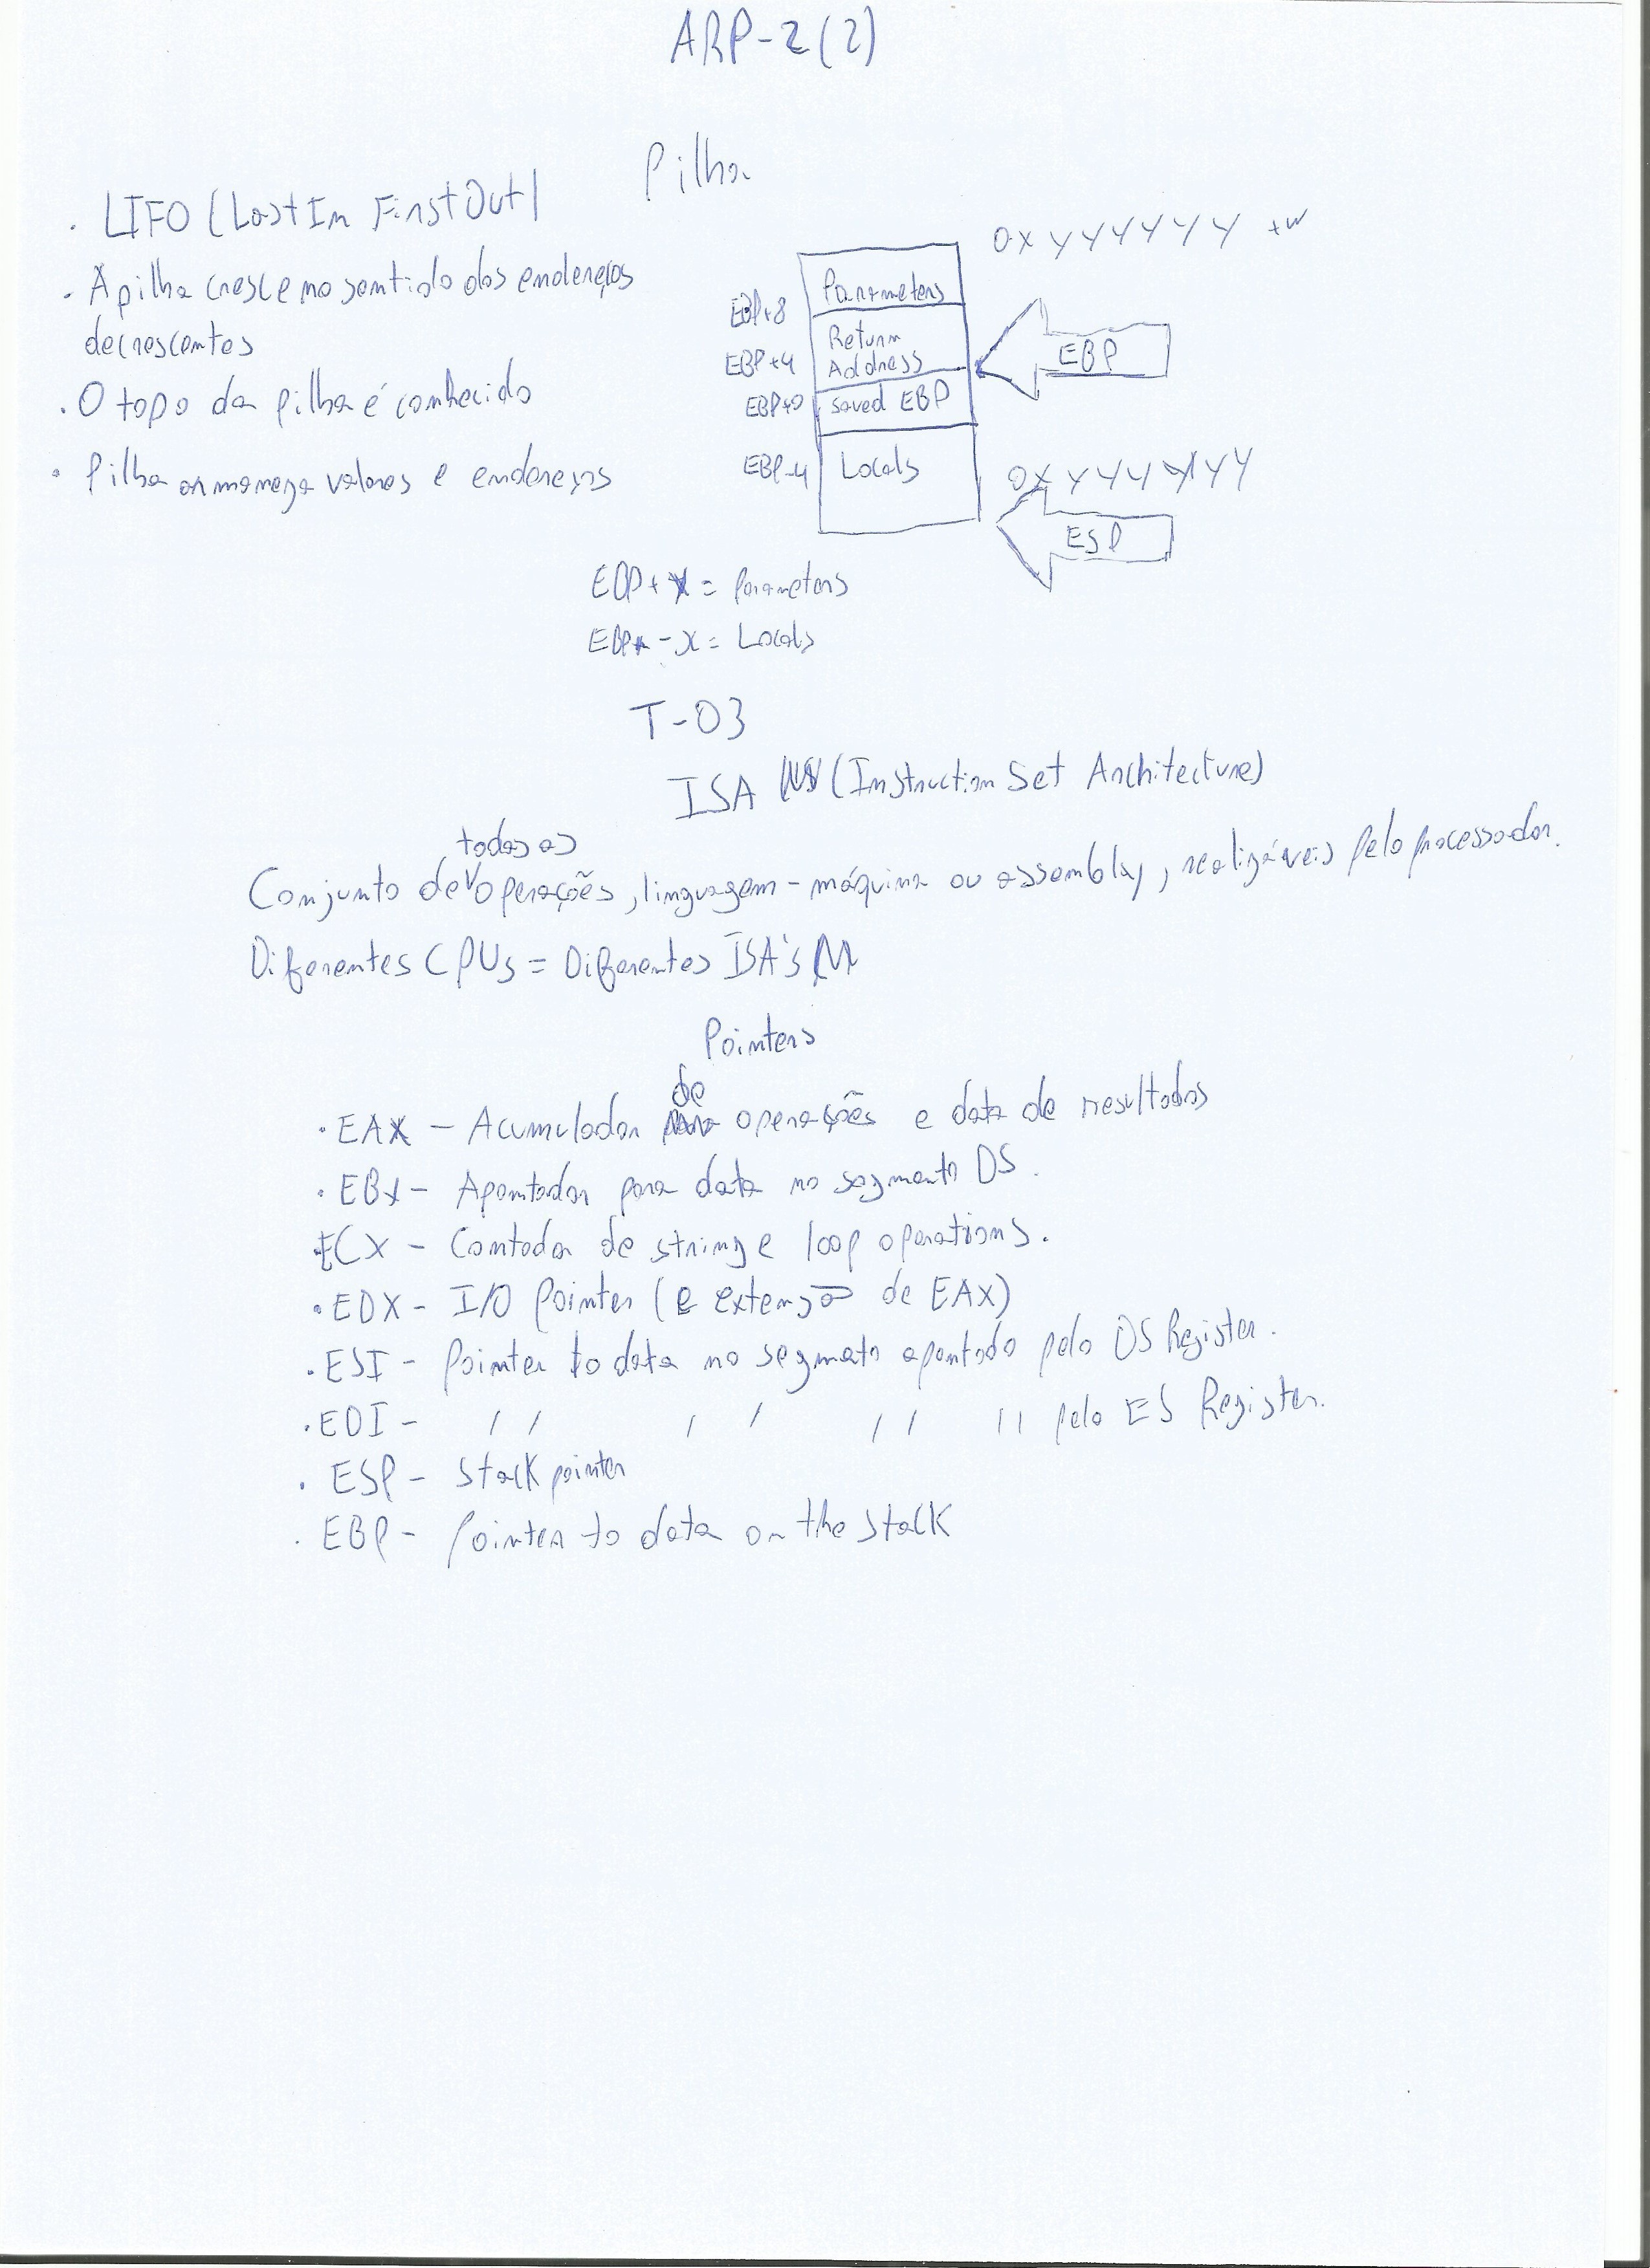 ARP-2(2)
Pilha
. LIFO (Last In First Out)
. A pilha cresce no sentido dos endereços
decrescentes
. O topo da pilha é conhecido
. Pilha armanega valores e endereços
0xYYYYYY +W
EBP+8 Parameters
EBP+4 Return Address
EBP
EBP+0 Saved EBP
EBP-4 Locals
0xYYYYYY
ESP
EBP+X = Parameters
EBP-X = Locals
T-03
ISA (Instruction Set Architecture)
Conjunto de todas as operações, linguagem-máquina ou assembly, realizáveis pelo processador.
Diferentes CPUs = Diferentes ISA's
Pointers
. EAX - Acumulador de operações e data de resultados
. EBX - Apontador para data no segmento DS.
ECX - Contador de string e loop operations.
. EDX - I/O Pointer (e extensão de EAX)
. ESI - Pointer to data no segmento apontado pelo DS Register.
. EDI - // // // // pelo ES Register.
. ESP - Stack pointer
. EBP - Pointer to data on the stack